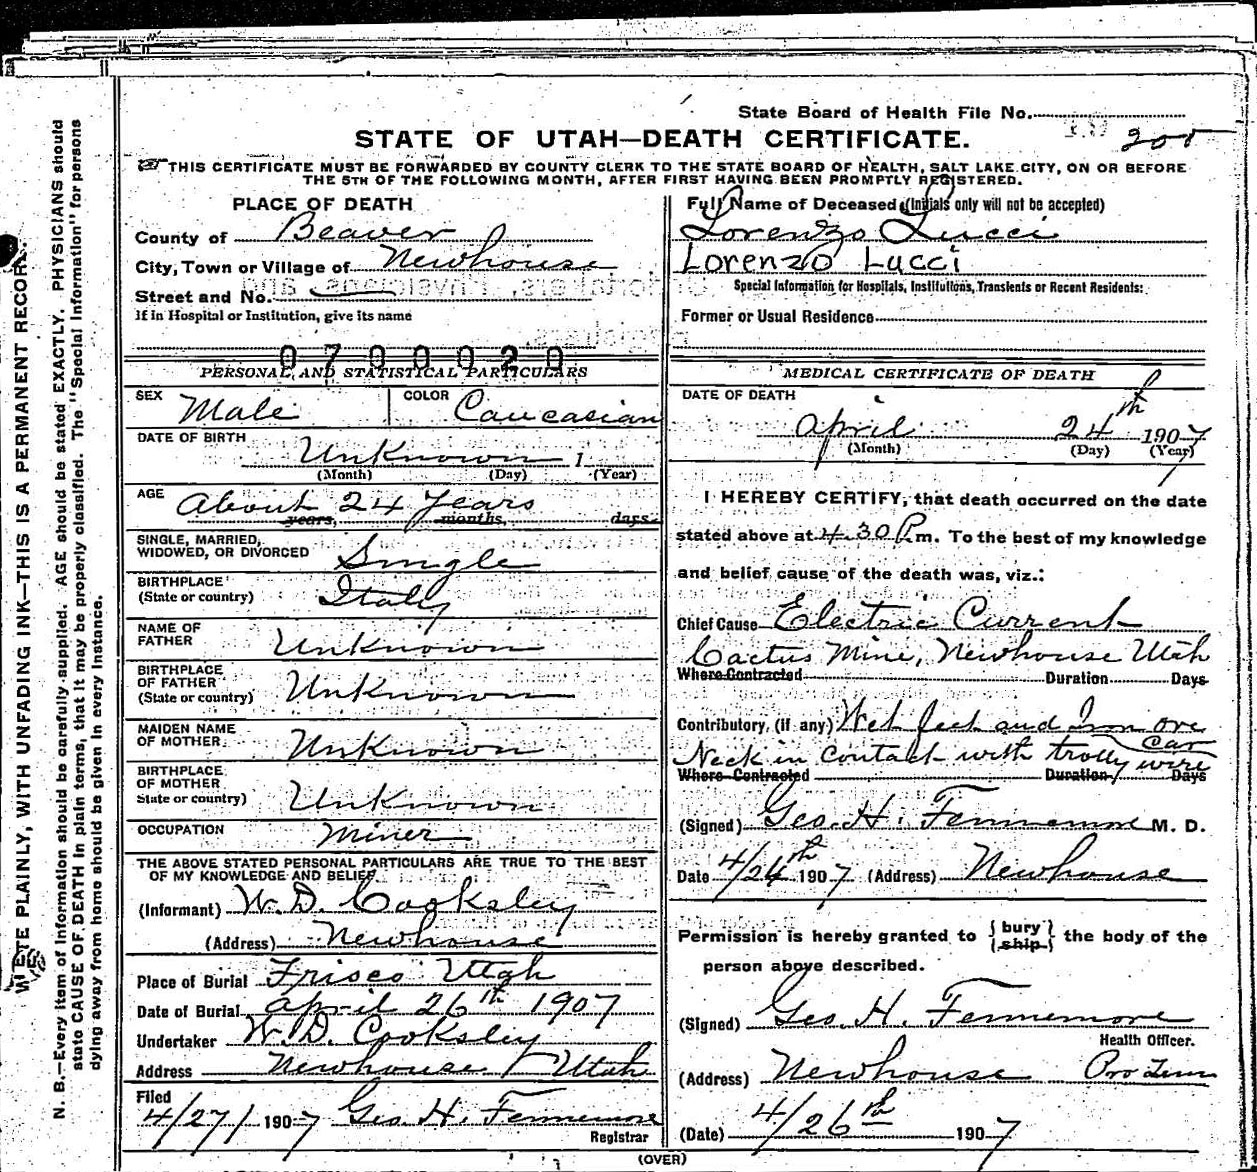 State Board of Health File No.
200
STATE OF UTAH—DEATH CERTIFICATE.
THIS CERTIFICATE MUST BE FORWARDED BY COUNTY CLERK TO THE STATE BOARD OF HEALTH, SALT LAKE CITY, ON OR BEFORE
THE 5TH OF THE FOLLOWING MONTH, AFTER FIRST HAVING BEEN PROMPTLY REGISTERED.
PLACE OF DEATH
County of Beaver
City, Town or Village of Newhouse
Street and No.
If in Hospital or Institution, give its name
0700020
PERSONAL AND STATISTICAL PARTICULARS
SEX Male COLOR Caucasian
DATE OF BIRTH
Unknown 1
(Month) (Day) (Year)
AGE About 24 Years
years, months, days
SINGLE, MARRIED,
WIDOWED, OR DIVORCED Single
BIRTHPLACE
(State or country) Italy
NAME OF
FATHER Unknown
BIRTHPLACE
OF FATHER
(State or country) Unknown
MAIDEN NAME
OF MOTHER Unknown
BIRTHPLACE
OF MOTHER
State or country) Unknown
OCCUPATION Miner
THE ABOVE STATED PERSONAL PARTICULARS ARE TRUE TO THE BEST
OF MY KNOWLEDGE AND BELIEF
(Informant) W. D. Cooksley
(Address) Newhouse
Place of Burial Frisco Utah
Date of Burial April 26th 1907
Undertaker W. D. Cooksley
Address Newhouse Utah
Filed
4/27/ 1907 Geo. H. Fennemore
Registrar
Full Name of Deceased (Initials only will not be accepted)
Lorenzo Lucci
Lorenzo Lucci
Special Information for Hospitals, Institutions, Transients or Recent Residents:
Former or Usual Residence
MEDICAL CERTIFICATE OF DEATH
DATE OF DEATH
April 24th 1907
(Month) (Day) (Year)
I HEREBY CERTIFY, that death occurred on the date
stated above at 4.30 P.m. To the best of my knowledge
and belief cause of the death was, viz.:
Chief Cause Electric Current
Cactus Mine, Newhouse Utah
Where Contracted Duration Days
Contributory, (if any) Wet feet and Iron ore
car
Neck in contact with trolly wire
Where Contracted Duration Days
(Signed) Geo. H. Fennemore M. D.
Date 4/24th 1907 (Address) Newhouse
Permission is hereby granted to {bury ship} the body of the
person above described.
(Signed) Geo. H. Fennemore
Health Officer.
(Address) Newhouse Pro Tem
(Date) 4/26th 1907
(OVER)
WRITE PLAINLY, WITH UNFADING INK—THIS IS A PERMANENT RECORD.
N. B.—Every item of information should be carefully supplied. AGE should be stated EXACTLY. PHYSICIANS should
state CAUSE OF DEATH in plain terms, that it may be properly classified. The "Special Information" for persons
dying away from home should be given in every instance.